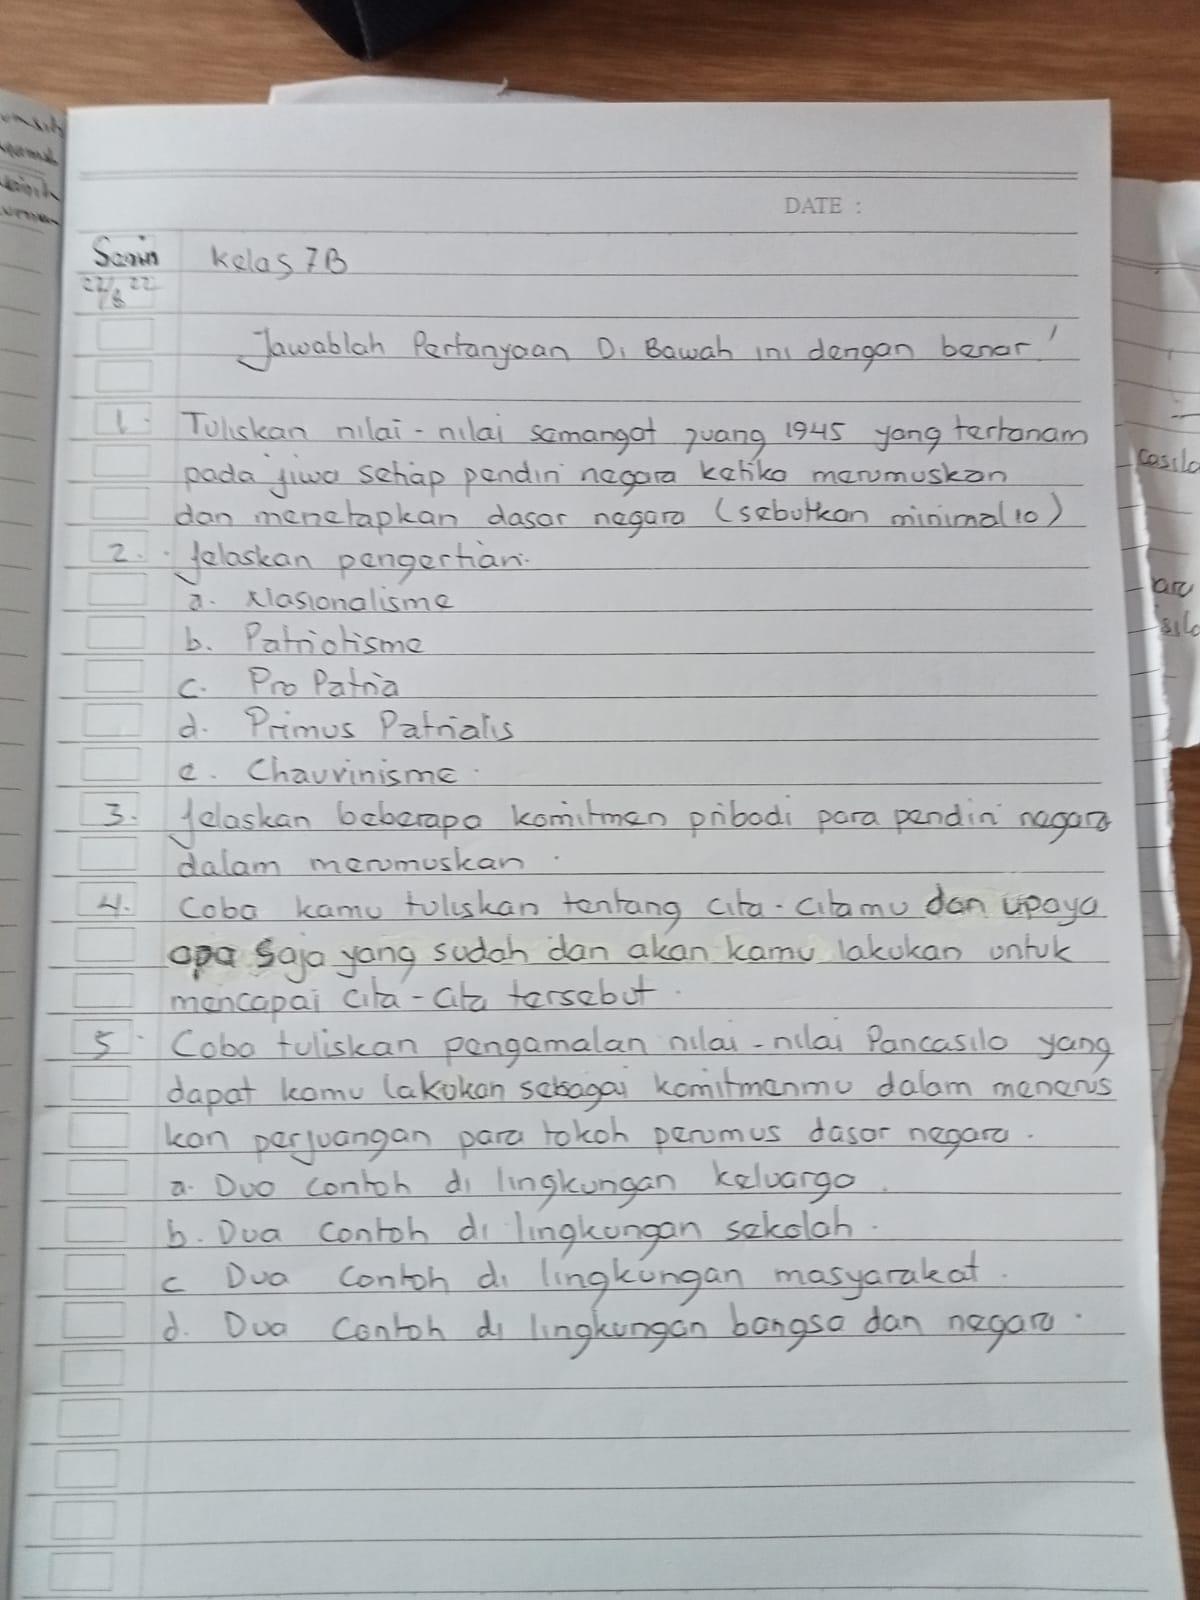 DATE :
Senin
Kelas 7B
22/8 22
Jawablah Pertanyaan Di Bawah ini dengan benar!
1. Tuliskan nilai-nilai semangat juang 1945 yang tertanam
pada jiwa setiap pendiri negara ketika merumuskan
dan menetapkan dasar negara (sebutkan minimal 10)
2. Jelaskan pengertian.
a. Nasionalisme
b. Patriotisme
c. Pro Patria
d. Primus Patrialis
e. Chauvinisme.
3. Jelaskan beberapa komitmen pribadi para pendiri negara
dalam merumuskan.
4. Coba kamu tuliskan tentang cita-citamu dan upaya
apa saja yang sudah dan akan kamu lakukan untuk
mencapai cita-cita tersebut.
5. Coba tuliskan pengamalan nilai-nilai Pancasila yang
dapat kamu lakukan sebagai komitmenmu dalam menerus
kan perjuangan para tokoh perumus dasar negara.
a. Dua contoh di lingkungan keluarga.
b. Dua contoh di lingkungan sekolah.
c Dua contoh di lingkungan masyarakat.
d. Dua contoh di lingkungan bangsa dan negara.